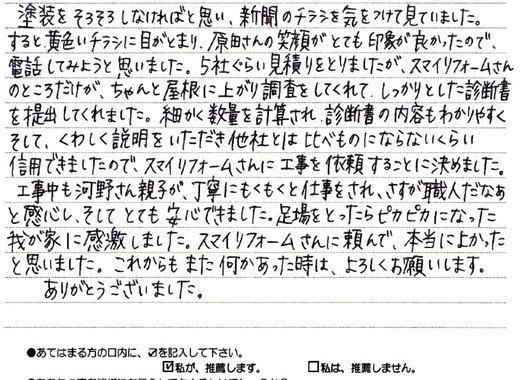 塗装をそろそろしなければと思い、新聞のチラシを気をつけて見ていました。
すると黄色いチラシに目がとまり、原田さんの笑顔がとても印象が良かったので、
電話してみようと思いました。5社ぐらい見積りをとりましたが、スマイリフォームさん
のところだけが、ちゃんと屋根に上がり調査をしてくれて、しっかりとした診断書
を提出してくれました。細かく数量を計算され、診断書の内容もわかりやすく
そして、くわしく説明をいただき他社とは比べものにならないくらい
信用できましたので、スマイリフォームさんに工事を依頼することに決めました。
工事中も河野さん親子が、丁寧にもくもくと仕事をされ、さすが職人だなぁ
と感心し、そしてとても安心できました。足場をとったらピカピカになった
我が家に感激しました。スマイリフォームさんに頼んで、本当によかった
と思いました。これからもまた何かあった時は、よろしくお願いします。
ありがとうございました。
●あてはまる方の口内に、☑を記入して下さい。
☑私が、推薦します。 □私は、推薦しません。